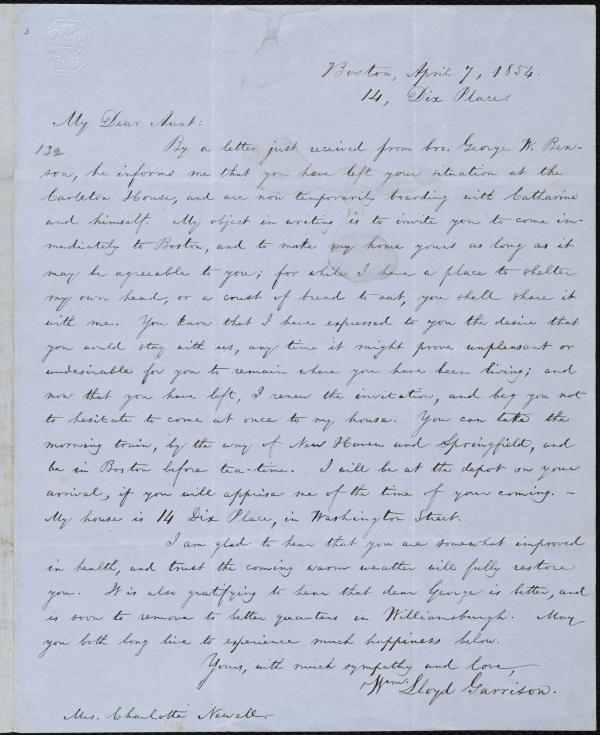 Boston, April 7, 1854.
14, Dix Place.
My Dear Aunt:
132
By a letter just received from bro. George W. Ben-
son, he informs me that you have left your situation at the
Carleton House, and are now temporarily boarding with Catharine
and himself. My object in writing is to invite you to come im-
mediately to Boston, and to make my home yours as long as it
may be agreeable to you; for while I have a place to shelter
my own head, or a crust of bread to eat, you shall share it
with me. You know that I have expressed to you the desire that
you would stay with us, any time it might prove unpleasant or
undesirable for you to remain where you have been living; and
now that you have left, I renew the invitation, and beg you not
to hesitate to come at once to my house. You can take the
morning train, by the way of New Haven and Springfield, and
be in Boston before tea-time. I will be at the depot on your
arrival, if you will apprise me of the time of your coming. —
My house is 14 Dix Place, in Washington Street.
I am glad to hear that you are somewhat improved
in health, and trust the coming warm weather will fully restore
you. It is also gratifying to hear that dear George is better, and
is soon to remove to better quarters in Williamsburgh. May
you both long live to experience much happiness below.
Yours, with much sympathy and love,
Wm. Lloyd Garrison.
Mrs. Charlotte Newell.